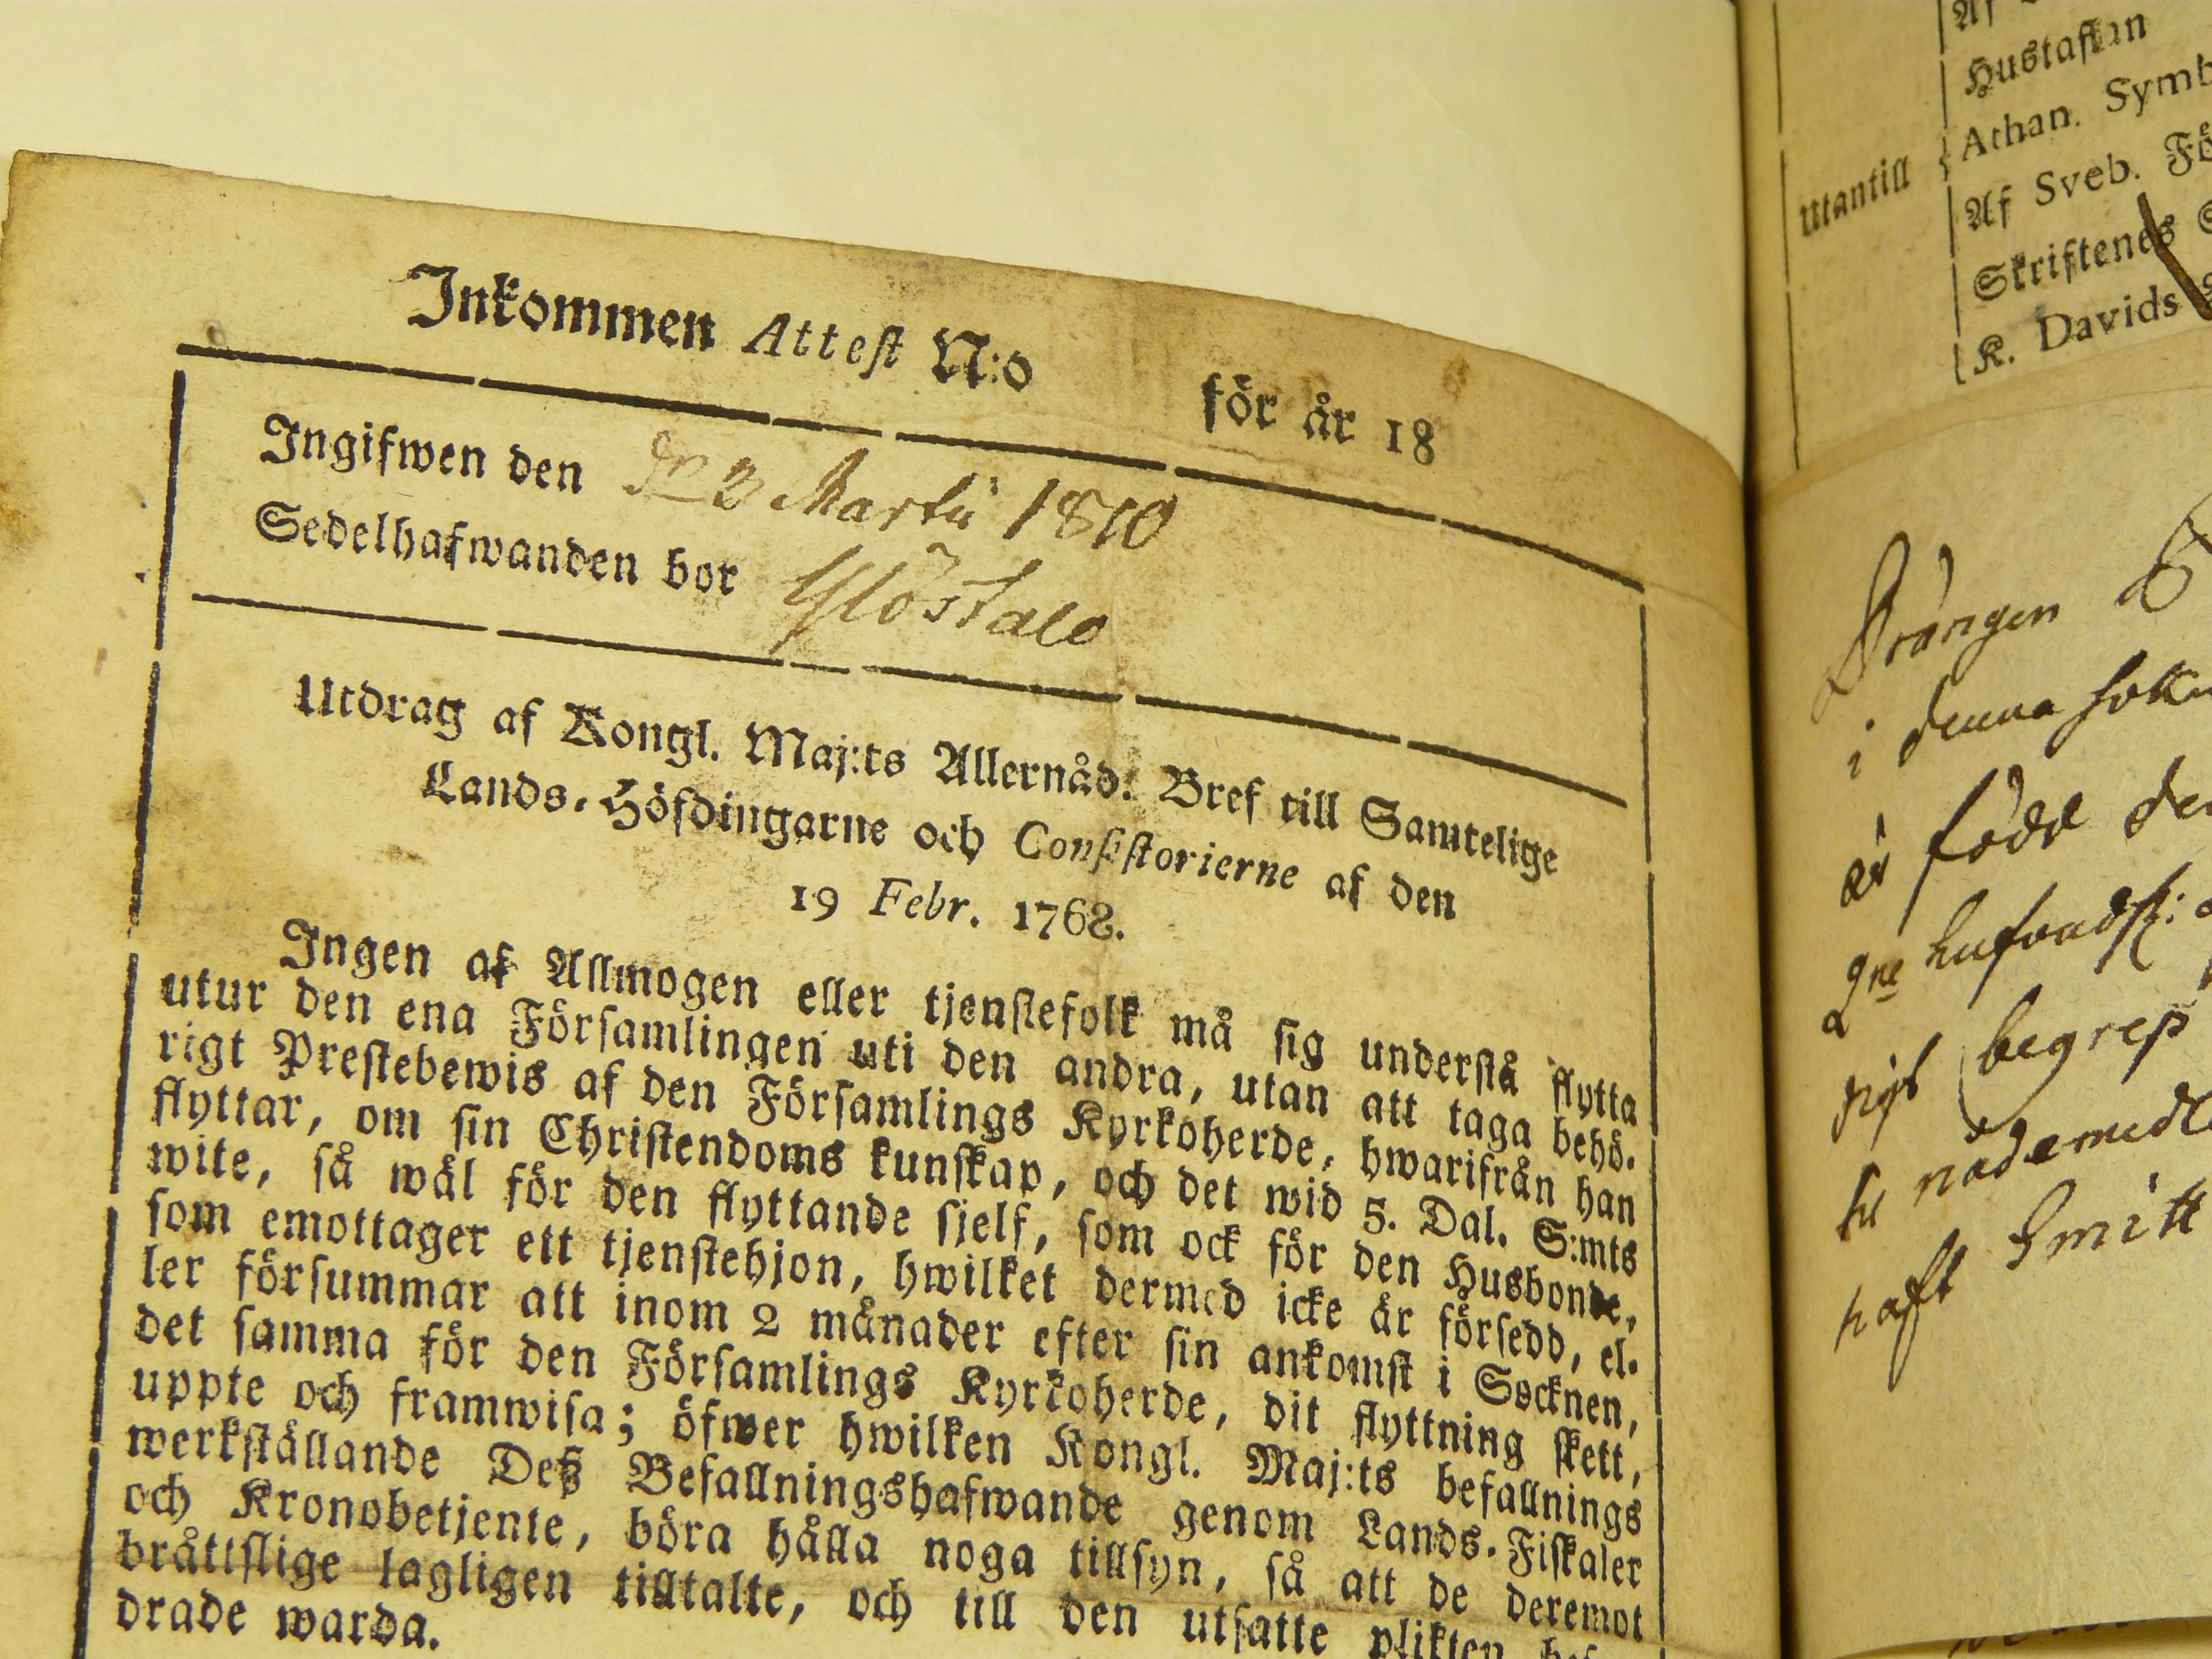 Inkommen Attest N:o för år 18
Ingifwen den d. 2 Martii 1810
Sedelhafwanden bor
Utdrag af Kongl. Maj:ts Allernåd. Bref till Samtelige
Lands-Höfdingarne och Consistorierne af den
19 Febr. 1768.
Ingen af Allmogen eller tjenstefolk må sig understå flytta
utur den ena Församlingen uti den andra, utan att taga behö-
rigt Prestebewis af den Församlings Kyrkoherde, hwarifrån han
flyttar, om sin Christendoms kunskap, och det wid 5. Dal. S:mts
wite, så wäl för den flyttande sjelf, som ock för den Husbonde,
som emottager ett tjenstehjon, hwilket dermed icke är försedd, el-
ler försummar att inom 2 månader efter sin ankomst i Socknen,
det samma för den Församlings Kyrkoherde, dit flyttning skett,
uppte och framwisa; öfwer hwilken Kongl. Maj:ts befallnings
werkställande Deß Befallningshafwande genom Lands-Fiskaler
och Kronobetjente, böra hålla noga tillsyn, så att de deremot
bråttslige lagligen tilltalte, och till den utsatte plikten
drade warda.
Utantill
Hustaflan
Athan. Symb
Af Sveb. Fö
Skriftenes
K. Davids
Drängen
i denna
är född den
begrep
haft Smitt